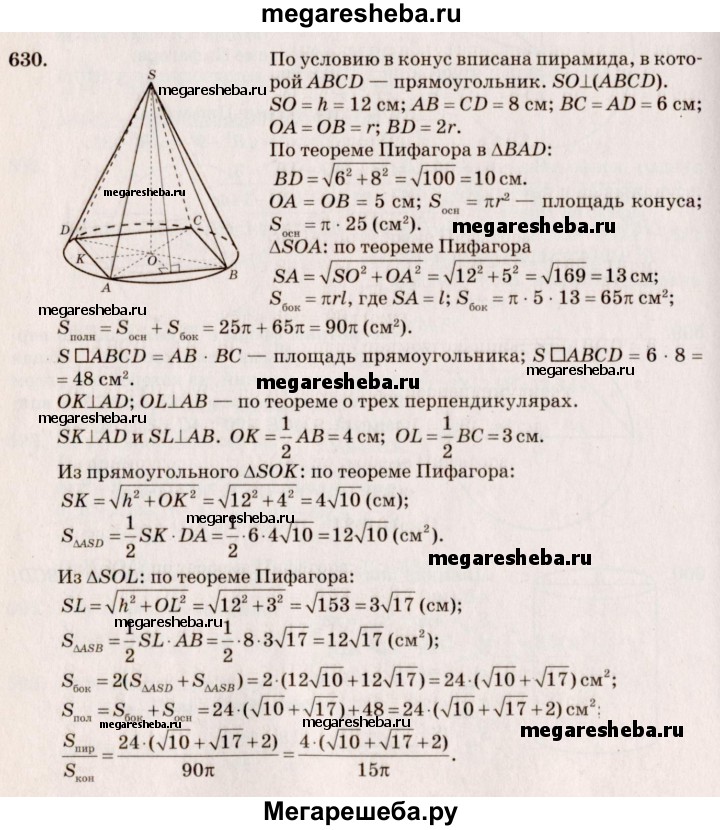 megaresheba.ru
630.
По условию в конус вписана пирамида, в кото-
рой ABCD — прямоугольник. SO⊥(ABCD).
SO = h = 12 см; AB = CD = 8 см; BC = AD = 6 см;
OA = OB = r; BD = 2r.
По теореме Пифагора в ΔBAD:
BD = √(6² + 8²) = √100 = 10 см.
OA = OB = 5 см; Sосн = πr² — площадь конуса;
Sосн = π · 25 (см²).
megaresheba.ru
ΔSOA: по теореме Пифагора
SA = √(SO² + OA²) = √(12² + 5²) = √169 = 13 см;
Sбок = πrl, где SA = l; Sбок = π · 5 · 13 = 65π см²;
S
megaresheba.ru
megaresheba.ru
D
C
K
O
A
B
megaresheba.ru
megaresheba.ru
Sполн = Sосн + Sбок = 25π + 65π = 90π (см²).
S □ABCD = AB · BC — площадь прямоугольника; S □ABCD = 6 · 8 =
megaresheba.ru
= 48 см².
megaresheba.ru
OK⊥AD; OL⊥AB — по теореме о трех перпендикулярах.
megaresheba.ru
SK⊥AD и SL⊥AB. OK = 1/2 AB = 4 см; OL = 1/2 BC = 3 см.
Из прямоугольного ΔSOK: по теореме Пифагора:
SK = √(h² + OK²) = √(12² + 4²) = 4√10 (см);
megaresheba.ru
SΔASD = 1/2 SK · DA = 1/2 · 6 · 4√10 = 12√10 (см²).
megaresheba.ru
Из ΔSOL: по теореме Пифагора:
SL = √(h² + OL²) = √(12² + 3²) = √153 = 3√17 (см);
megaresheba.ru
SΔASB = 1/2 SL · AB = 1/2 · 8 · 3√17 = 12√17 (см²);
Sбок = 2(SΔASD + SΔASB) = 2 · (12√10 + 12√17) = 24 · (√10 + √17) см²;
Sпол = Sбок + Sосн = 24 · (√10 + √17) + 48 = 24 · (√10 + √17 + 2) см²;
megaresheba.ru
megaresheba.ru
megaresheba.ru
Sпир/Sкон = 24 · (√10 + √17 + 2)/90π = 4 · (√10 + √17 + 2)/15π.
Мегарешеба.ру